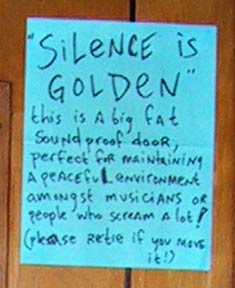 "SiLENCE is
GOLDEN"
this is A big fAt
SOUNDproof dooR,
perfect foR mAiNtAiNiNg
A peAcefuL enviRonment
Amongst musiciANs oR
people who screAm A lot!
(pleAse Retie if you move
it!)